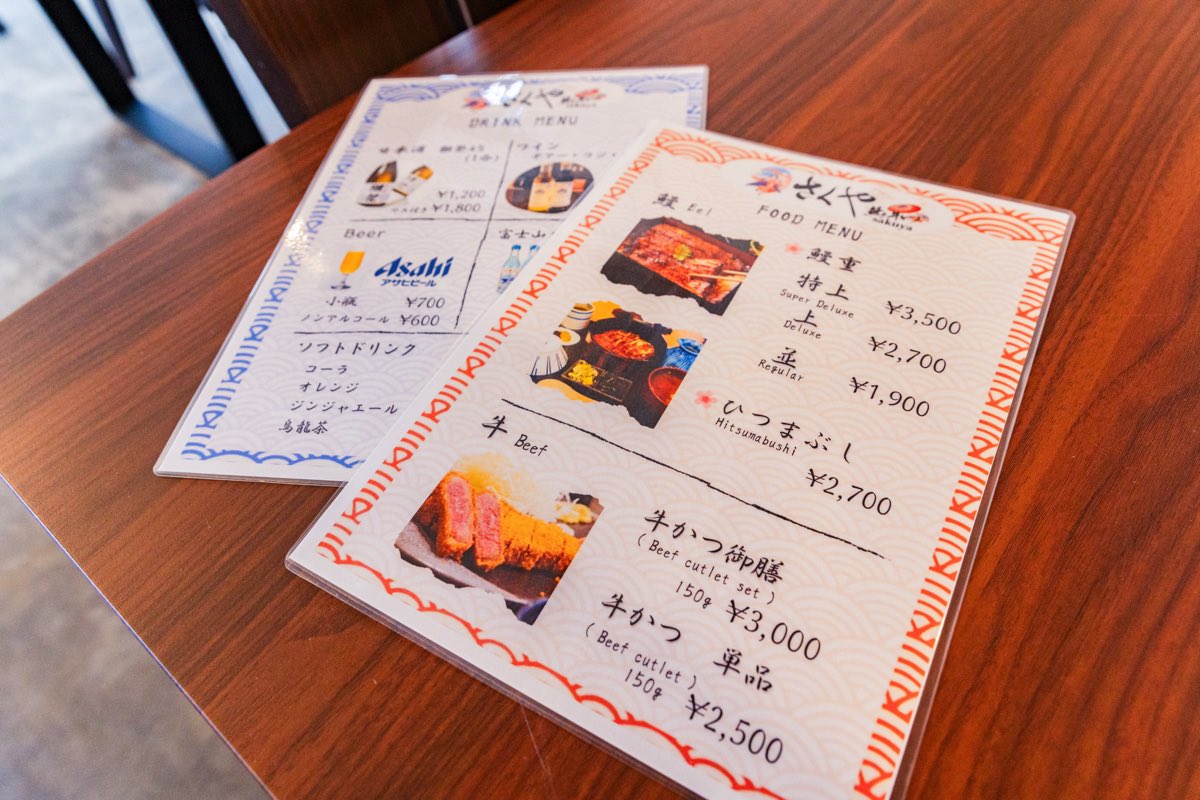 さくや
sakuya
DRINK MENU
日本酒
¥1,200
¥1,800
ワイン
Beer
Asahi
アサヒビール
小瓶 ¥700
ノンアルコール ¥600
富士山
ソフトドリンク
コーラ
オレンジ
ジンジャエール
烏龍茶
さくや
sakuya
FOOD MENU
鰻 Eel
鰻重
特上
Super Deluxe
¥3,500
上
Deluxe
¥2,700
並
Regular
¥1,900
ひつまぶし
Hitsumabushi
¥2,700
牛 Beef
牛かつ御膳
( Beef cutlet set )
150g ¥3,000
牛かつ 単品
( Beef cutlet )
150g ¥2,500